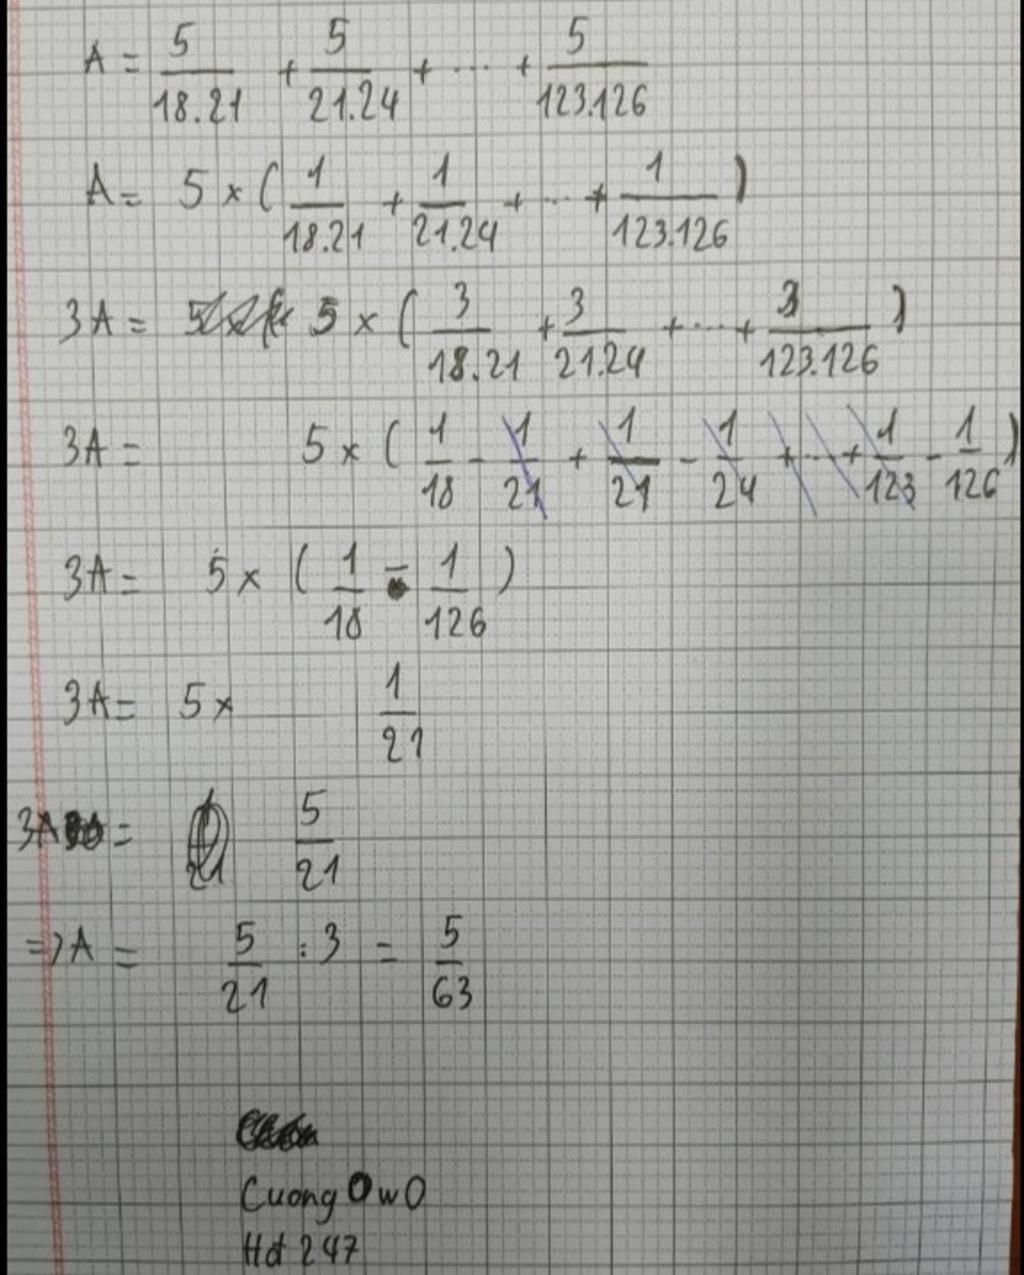 A = 5/18.21 + 5/21.24 + ... + 5/123.126
A = 5 × ( 1/18.21 + 1/21.24 + ... + 1/123.126 )
3A = 5 × ( 3/18.21 + 3/21.24 + ... + 3/123.126 )
3A = 5 × ( 1/18 - 1/21 + 1/21 - 1/24 + ... + 1/123 - 1/126 )
3A = 5 × ( 1/18 - 1/126 )
3A = 5 × 1/21
3A = 5/21
=> A = 5/21 : 3 = 5/63
Cuong OwO
Hd 247